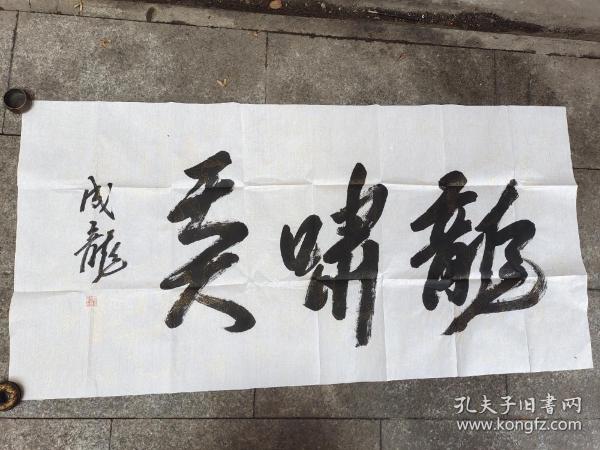 龍嘯
成龍
孔夫子旧書网
www.kongfz.com